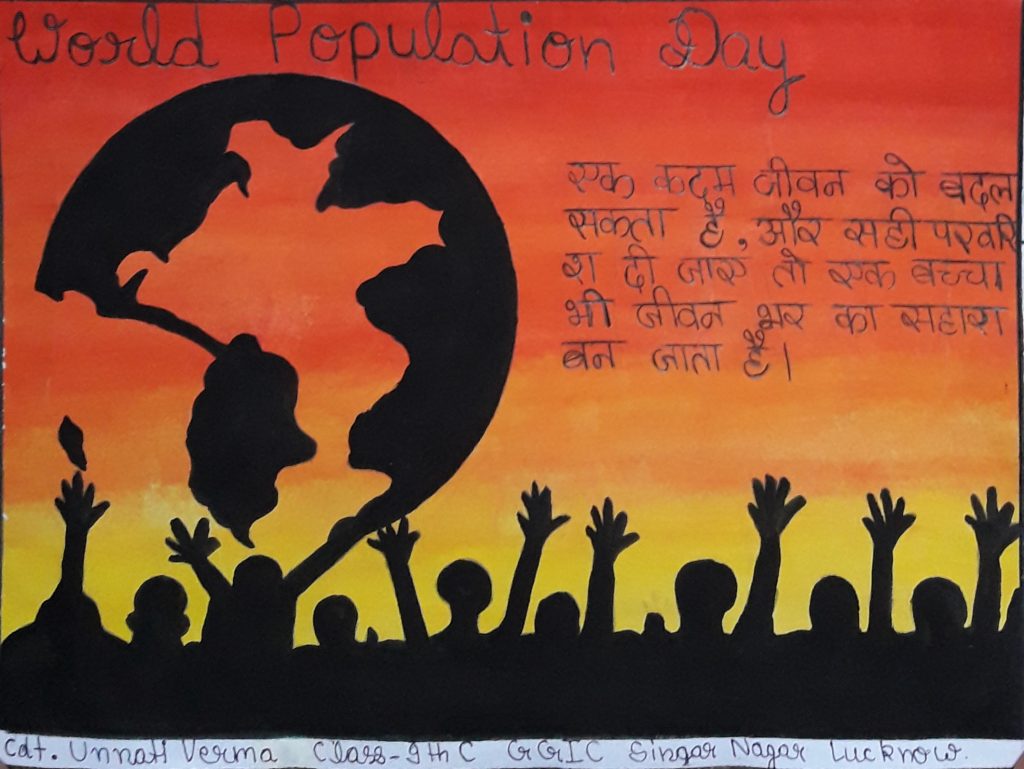 World Population Day
एक कदम जीवन को बदल
सकता है, और सही परवरि
श दी जाए तो एक बच्चा
भी जीवन भर का सहारा
बन जाता है।
Cdt. Unnati Verma Class-9th C GGIC Singar Nagar Lucknow.